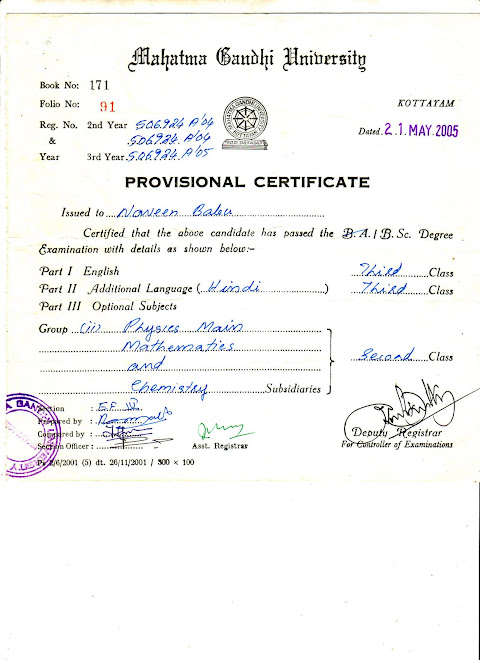 Mahatma Gandhi University
Book No: 171
Folio No: 91
KOTTAYAM
Reg. No. 2nd Year 506924 A'04
& 506924 A'04
Year 3rd Year 506924 A'05
Dated. 21. MAY. 2005
PROVISIONAL CERTIFICATE
Issued to Naveen Babu
Certified that the above candidate has passed the B.A./B.Sc. Degree
Examination with details as shown below:-
Part I English Third Class
Part II Additional Language (Hindi) Third Class
Part III Optional Subjects
Group (ii) Physics Main
Mathematics
and Second Class
Chemistry Subsidiaries
Section : E.F. IV
Prepared by :
Compared by :
Section Officer :
Asst. Registrar
Deputy Registrar
For Controller of Examinations
/6/2001 (5) dt. 26/11/2001 / 300 × 100